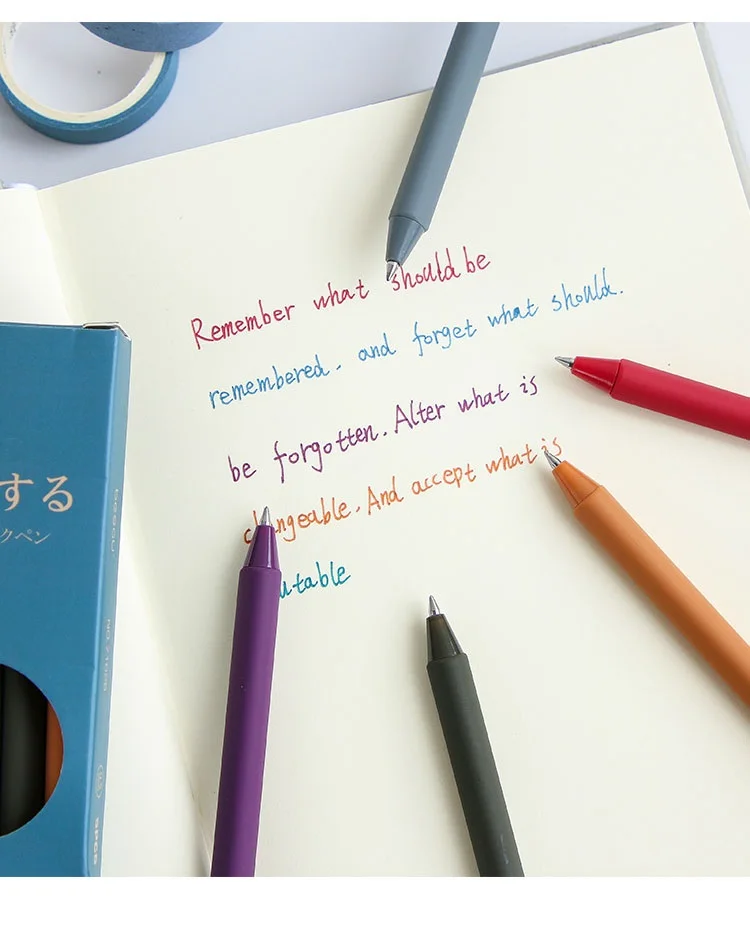 Remember what should be
remembered. and forget what should.
be forgotten. Alter what is
changeable. And accept what is
utable
する
クペン